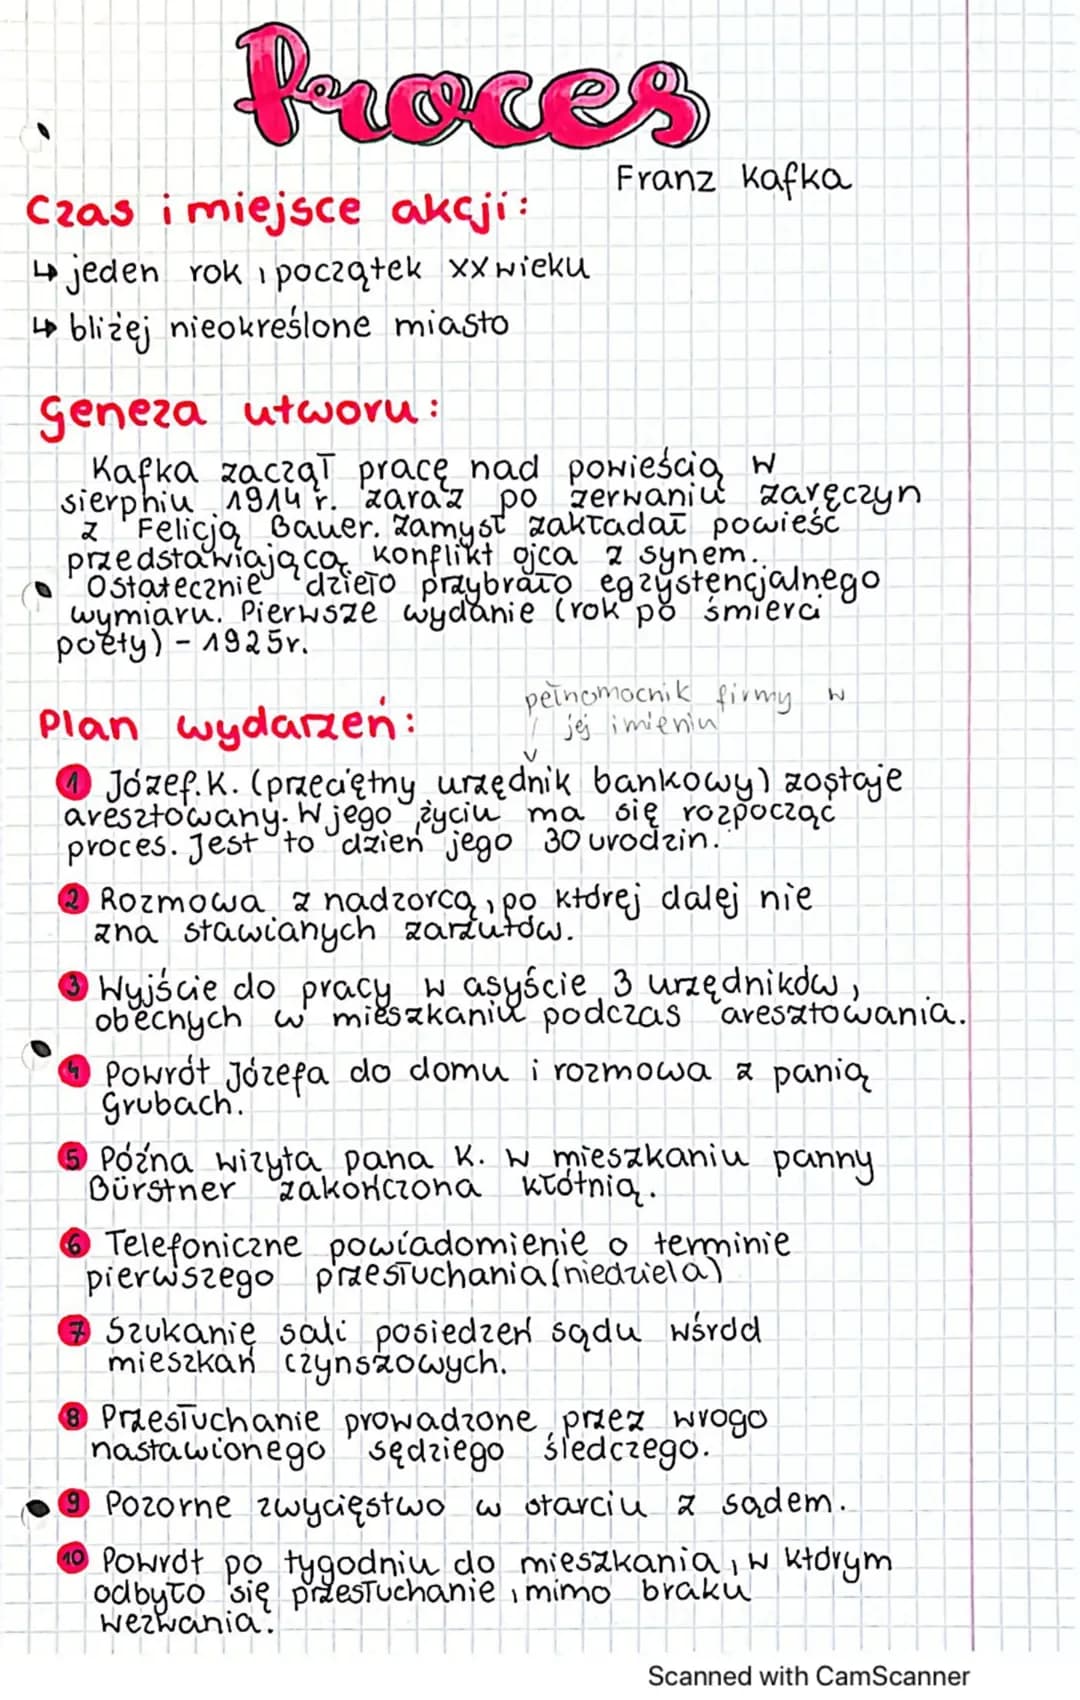 Proces
Franz Kafka
Czas i miejsce akcji:
↳ jeden rok, początek XX wieku
↳ bliżej nieokreślone miasto
Geneza utworu:
Kafka zaczął pracę nad powieścią w
sierpniu 1914 r. zaraz po zerwaniu zaręczyn
z Felicją Bauer. Zamysł zakładał powieść
przedstawiającą konflikt ojca z synem.
Ostatecznie dzieło przybrało egzystencjalnego
wymiaru. Pierwsze wydanie (rok po śmierci
poety) - 1925r.
pełnomocnik firmy w
jej imieniu
Plan wydarzeń:
1 Józef.K. (przeciętny urzędnik bankowy) zostaje
aresztowany. W jego życiu ma się rozpocząć
proces. Jest to dzień jego 30 urodzin.
2 Rozmowa z nadzorcą, po której dalej nie
zna stawianych zarzutów.
3 Wyjście do pracy w asyście 3 urzędników,
obecnych w mieszkaniu podczas aresztowania.
4 Powrót Józefa do domu i rozmowa z panią
Grubach.
5 Późna wizyta pana K. w mieszkaniu panny
Bürstner zakończona kłótnią.
6 Telefoniczne powiadomienie o terminie
pierwszego przesłuchania (niedziela)
7 Szukanie sali posiedzeń sądu wśród
mieszkań czynszowych.
8 Przesłuchanie prowadzone przez wrogo
nastawionego sędziego śledczego.
9 Pozorne zwycięstwo w starciu z sądem.
10 Powrót po tygodniu do mieszkania, w którym
odbyło się przesłuchanie, mimo braku
wezwania.
Scanned with CamScanner